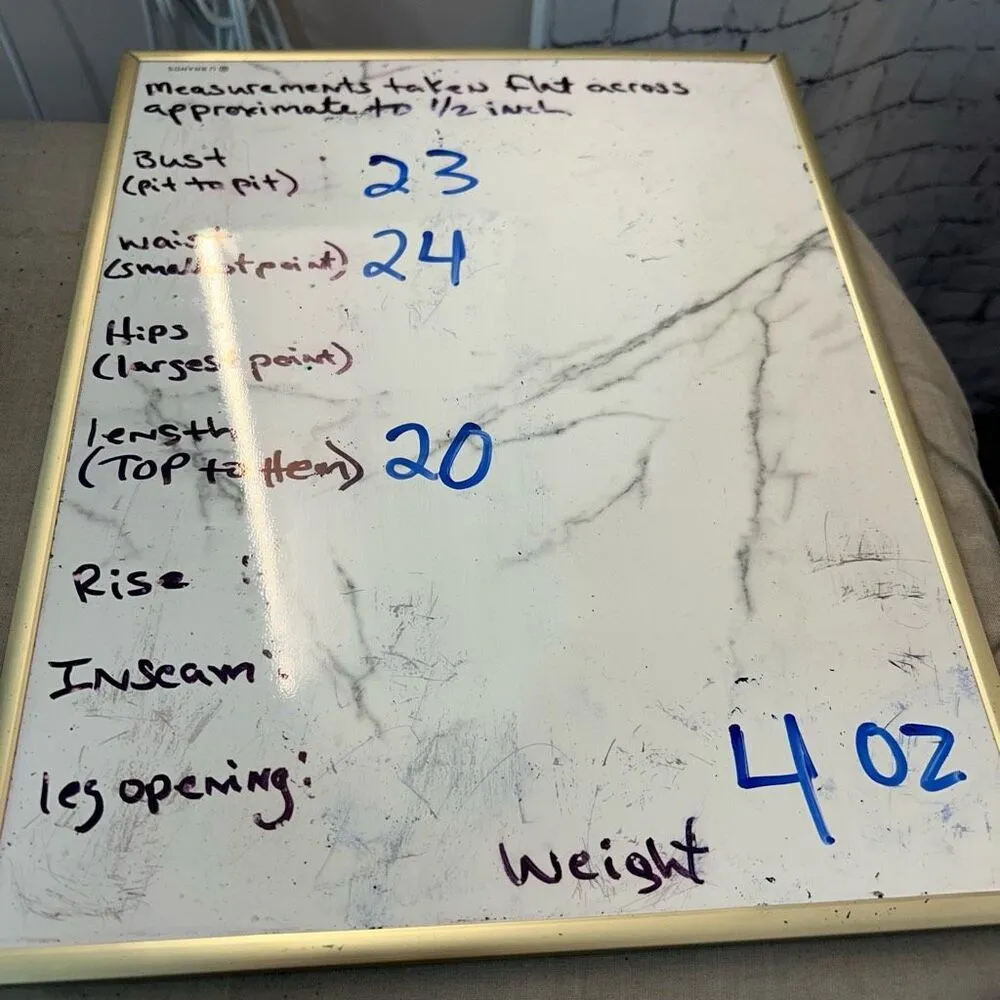 measurements taken flat across
approximate to 1/2 inch
Bust :
(pit to pit) 23
waist
(smallest point) 24
Hips
(largest point)
length
(TOP to Hem) 20
Rise :
Inseam :
leg opening:
4 oz
Weight